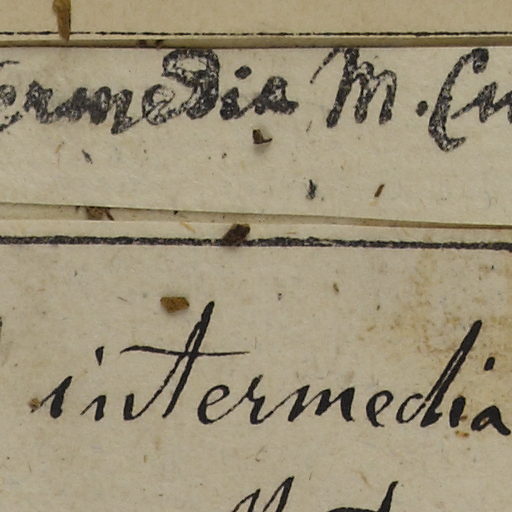 ermedia M. Cu
intermedia